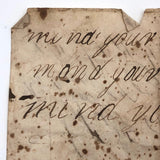 mind your
mond your
mind yo